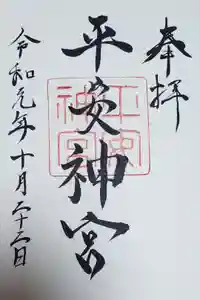 奉拝
平安神宮
平安神宮
令和元年十月二十二日